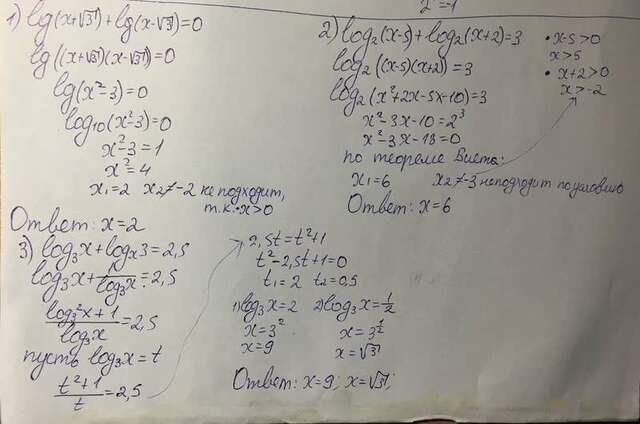 2 = 1
1) lg(x+√3)+lg(x-√3)=0
lg((x+√3)(x-√3))=0
lg(x²-3)=0
log₁₀(x²-3)=0
x²-3=1
x²=4
x₁=2 x₂≠-2 не подходит,
т.к. x>0
Ответ: x=2
2) log₂(x-5)+log₂(x+2)=3
log₂((x-5)(x+2))=3
log₂(x²+2x-5x-10)=3
x²-3x-10=2³
x²-3x-18=0
по теореме Виета:
x₁=6 x₂≠-3 неподходит по условию
Ответ: x=6
• x-5>0
x>5
• x+2>0
x>-2
3) log₃x+logₓ3=2,5
log₃x+1/log₃x=2,5
(log₃²x+1)/log₃x=2,5
пусть log₃x=t
(t²+1)/t=2,5
2,5t=t²+1
t²-2,5t+1=0
t₁=2 t₂=0,5
1) log₃x=2 2) log₃x=1/2
x=3² x=3^(1/2)
x=9 x=√3
Ответ: x=9; x=√3;